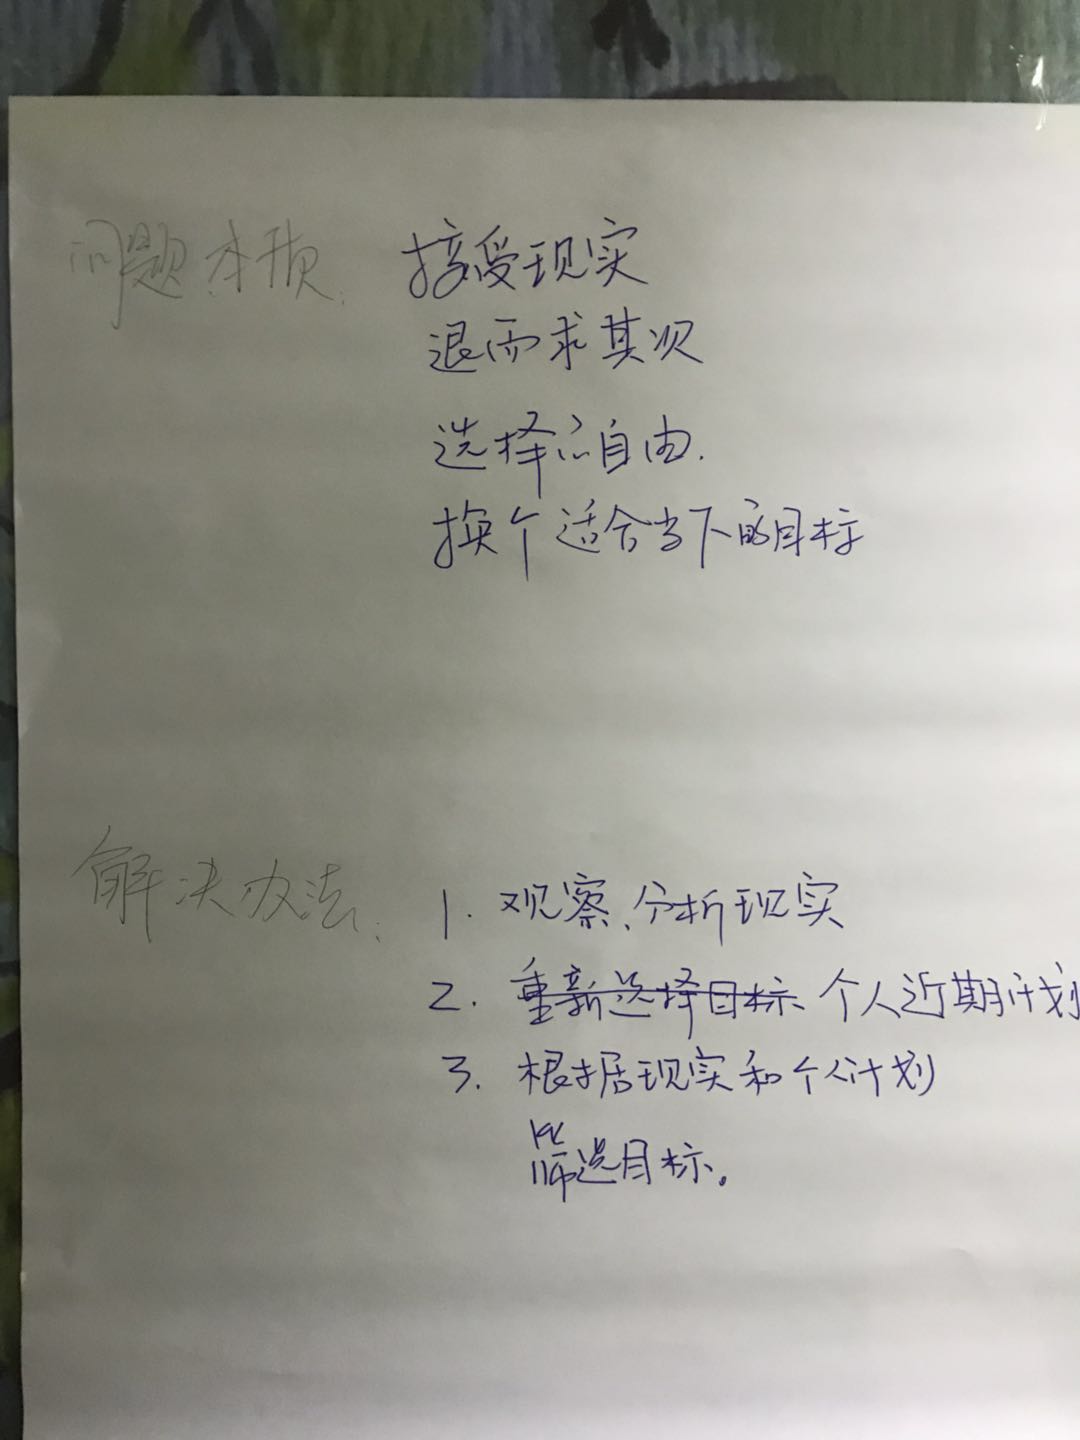 问题本质. 接受现实
退而求其次
选择心自由.
换个适合当下的目标
解决办法. 1. 观察、分析现实
2. 重新选择目标 个人近期计划
3. 根据现实和个人计划
筛选目标。